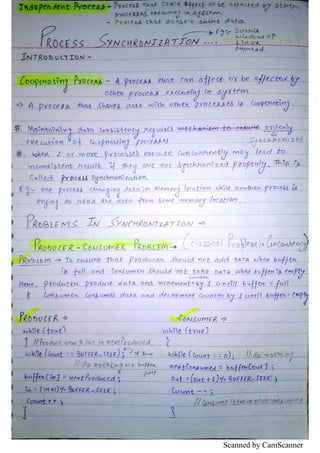 Independent Process - Process that can't affect or be affected by other
processes executing in system.
- Process that doesn't share data
PROCESS SYNCHRONIZATION ....
Eg:-
Windows OP
Linux
INTRODUCTION -
Cooperating Process - A process that can affect or be affected by
other process executing in system
=> A process that shares data with other processes is cooperating.
# Maintaining data consistency requires mechanism to ensure orderly
execution of cooperating processes
Synchronized
# when 2 or more processes execute concurrently may lead to
inconsistent result if they are not synchronized properly. This is
called process synchronization.
Eg:- one process changing data in memory location while another process is
trying to read the data from same memory location.
PROBLEMS IN SYNCHRONIZATION →
PRODUCER - CONSUMER PROBLEM → (classical Problem in Concurrency)
PROBLEM → To ensure that PRODUCER should not add DATA when buffer
is full and CONSUMER should not take DATA when buffer is empty
Here, Producer produce data and increment by 1 until buffer = full
counter
& Consumer consumes data and decrement counter by 1 until buffer = empty
PRODUCER → CONSUMER →
while (true) while (true)
{ // Produce item & put in nextProduced {
while (count == BUFFER_SIZE); while (count == 0); // do nothing
// do nothing
buffer [in] = nextProduced; nextConsumed = buffer [out];
in = (in+1) % BUFFER_SIZE; out = (out+1) % BUFFER_SIZE;
count ++; count --;
// consume item in nextConsumed
} }
Scanned by CamScanner